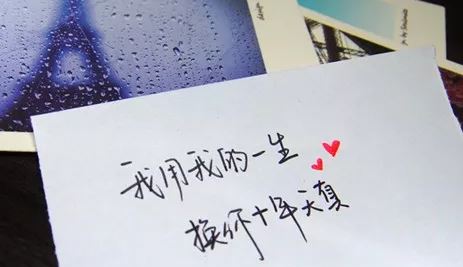 我用我的一生
换你十年天真